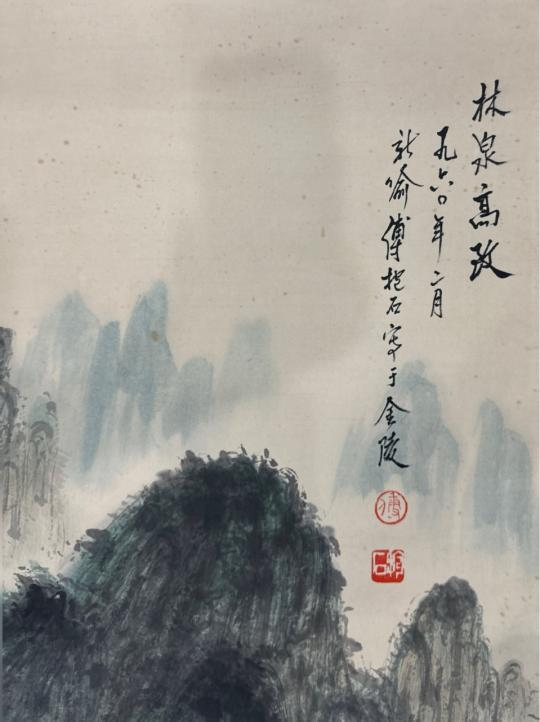 林泉高致
一九六〇年二月
新喻傅抱石写于金陵
傅
抱石